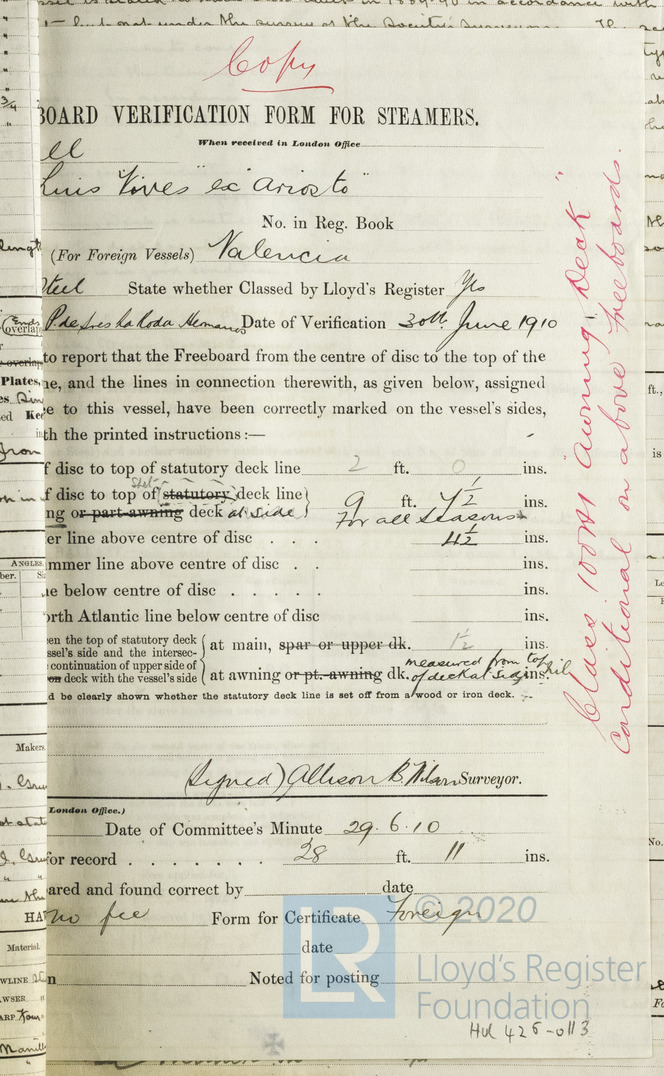 Copy
BOARD VERIFICATION FORM FOR STEAMERS.
When received in London Office
ell
Luis Vives" ex "Ariosto"
No. in Reg. Book
(For Foreign Vessels) Valencia
Steel State whether Classed by Lloyd's Register Yes
Date of Verification 30th June 1910
to report that the Freeboard from the centre of disc to the top of the
ne, and the lines in connection therewith, as given below, assigned
e to this vessel, have been correctly marked on the vessel's sides,
th the printed instructions:—
f disc to top of statutory deck line 2 ft. 0 ins.
f disc to top of statutory deck line 9 ft. 7 1/2 ins.
ng or part-awning deck at side For all seasons
er line above centre of disc . . . 4 1/2 ins.
mmer line above centre of disc . . ins.
ne below centre of disc . . . . . ins.
orth Atlantic line below centre of disc ins.
en the top of statutory deck
ssel's side and the intersec-
at main, spar or upper dk. 1 1/2 ins.
continuation of upper side of
deck with the vessel's side
at awning or pt.-awning dk. measured from top
of deck at side ins.
d be clearly shown whether the statutory deck line is set off from a wood or iron deck.
(Signed) Allison B. Wilson Surveyor.
London Office.)
Date of Committee's Minute 29.6.10
for record . . . . . . . 28 ft. 11 ins.
ared and found correct by date
no fee Form for Certificate Foreign
date
n Noted for posting
Class 100A1 Awning Deck"
Conditional on above freeboards.
LR
© 2020
Lloyd's Register
Foundation
Hul 426-0113